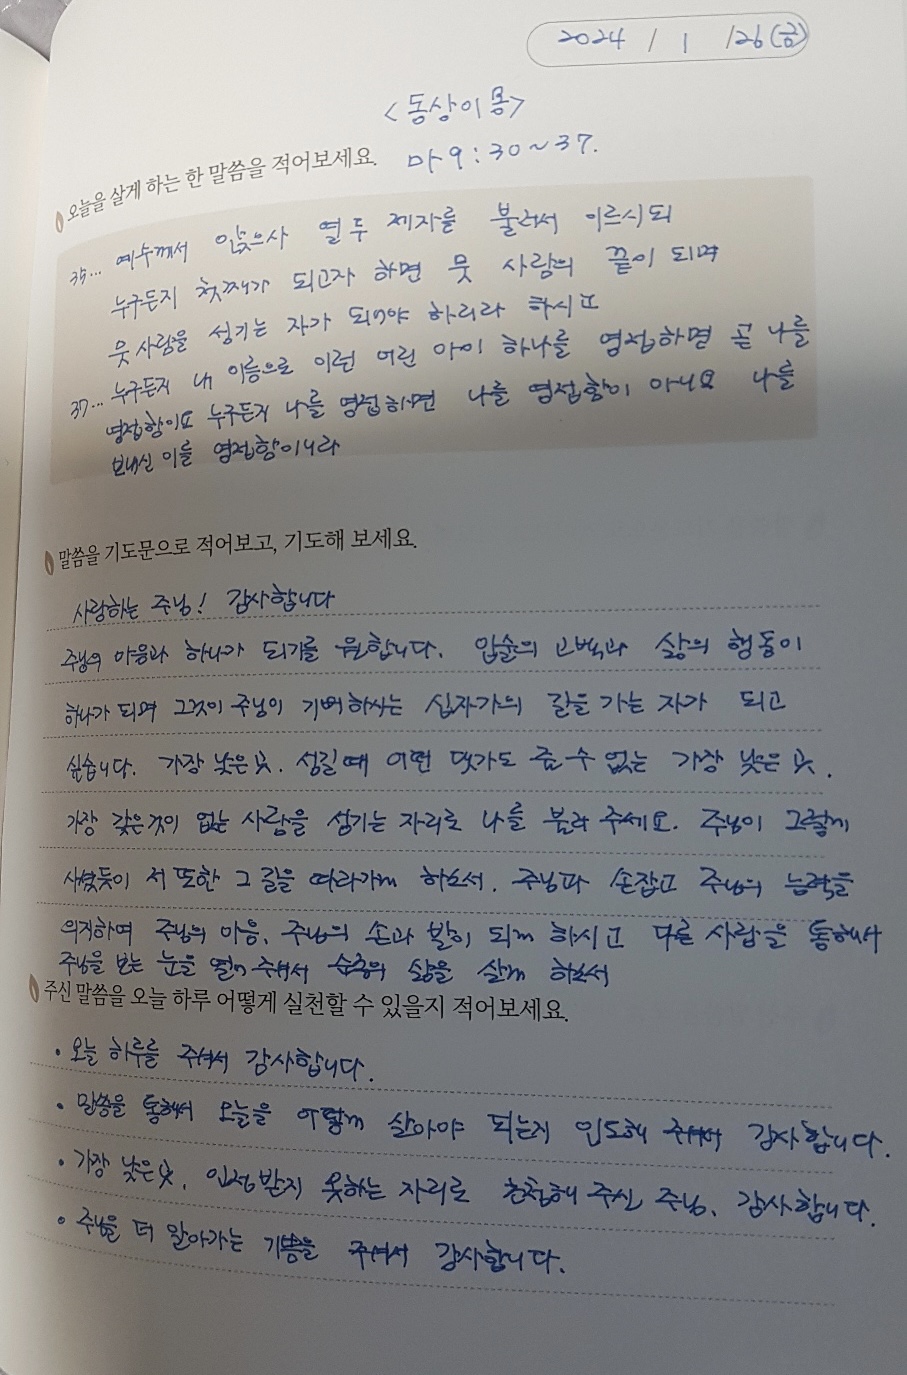 2024 / 1 /26(금)
<동상이몽>
오늘을 살게 하는 한 말씀을 적어보세요. 마 9:30~37.
35... 예수께서 앉으사 열두 제자를 불러서 이르시되
누구든지 첫째가 되고자 하면 뭇 사람의 끝이 되며
뭇사람을 섬기는 자가 되어야 하리라 하시고
37... 누구든지 내 이름으로 이런 어린 아이 하나를 영접하면 곧 나를
영접함이요 누구든지 나를 영접하면 나를 영접함이 아니요 나를
보내신 이를 영접함이니라
말씀을 기도문으로 적어보고, 기도해 보세요.
사랑하는 주님! 감사합니다
주님의 마음과 하나가 되기를 원합니다. 입술의 고백과 삶의 행동이
하나가 되며 그것이 주님이 기뻐하시는 십자가의 길을 가는 자가 되고
싶습니다. 가장 낮은 곳. 섬길 때 어떤 댓가도 줄 수 없는 가장 낮은 곳.
가장 갖은것이 없는 사람을 섬기는 자리로 나를 불러 주세요. 주님이 그렇게
사셨듯이 저 또한 그 길을 따라가게 하소서. 주님과 손잡고 주님의 능력을
의지하며 주님의 마음, 주님의 손과 발이 되게 하시고 다른 사람을 통해서
주님을 보는 눈을 열어 주셔서 순종의 삶을 살게 하소서
주신 말씀을 오늘 하루 어떻게 실천할 수 있을지 적어보세요.
• 오늘 하루를 주셔서 감사합니다.
• 말씀을 통해서 오늘을 어떻게 살아야 되는지 인도해 주셔서 감사합니다.
• 가장 낮은 곳, 인정받지 못하는 자리로 초청해 주신 주님, 감사합니다.
• 주님을 더 알아가는 기쁨을 주셔서 감사합니다.